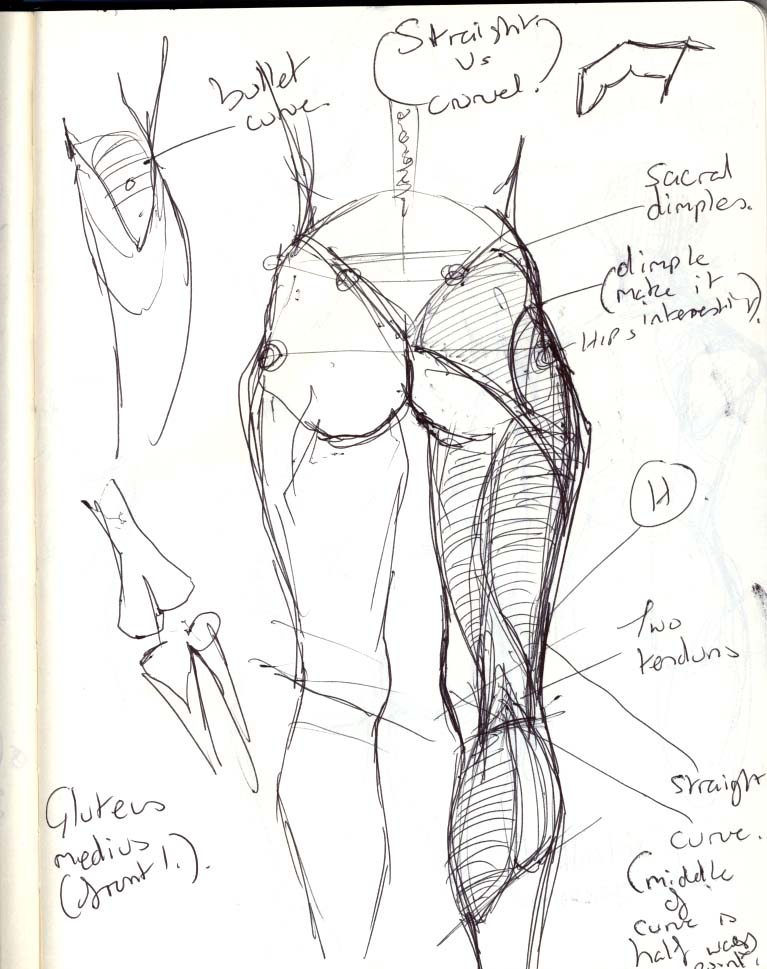 Straight
vs
curved.
bullet
curve
sacral
dimples.
dimple
(make it
interesting).
HIPS
H
Two
tendons
straight
curve.
(middle
of
curve is
half way
point.
Gluteus
medius
(front 1.).